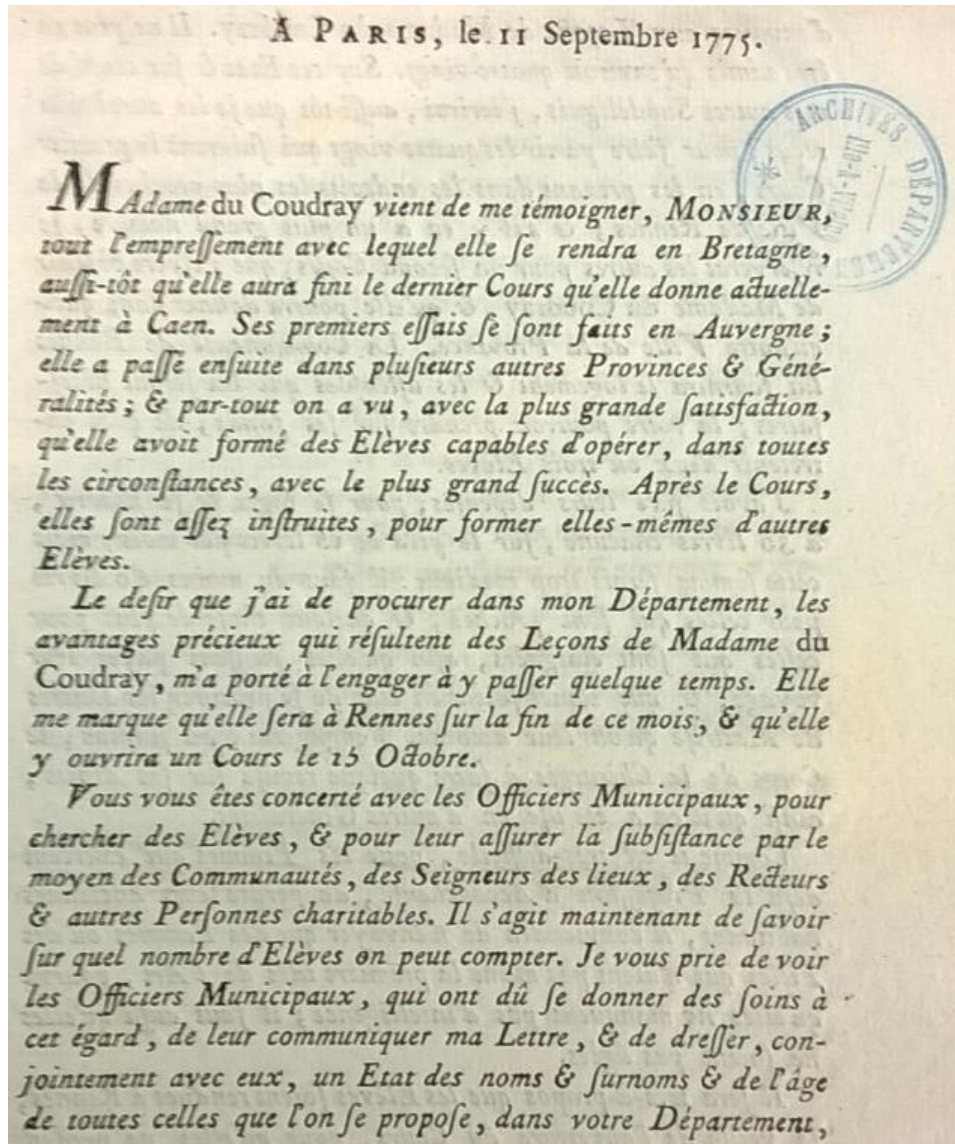 A PARIS, le 11 Septembre 1775.
ARCHIVES DÉPARTEMEN
Ille-&-Vilaine
MAdame du Coudray vient de me témoigner, MONSIEUR,
tout l'empreſſement avec lequel elle ſe rendra en Bretagne,
auſſi-tôt qu'elle aura fini le dernier Cours qu'elle donne actuelle-
ment à Caen. Ses premiers eſſais ſe ſont faits en Auvergne;
elle a paſſé enſuite dans pluſieurs autres Provinces & Géné-
ralités; & par-tout on a vu, avec la plus grande ſatisfaction,
qu'elle avoit formé des Elèves capables d'opérer, dans toutes
les circonſtances, avec le plus grand ſuccès. Après le Cours,
elles ſont aſſez inſtruites, pour former elles-mêmes d'autres
Elèves.
Le deſir que j'ai de procurer dans mon Département, les
avantages précieux qui réſultent des Leçons de Madame du
Coudray, m'a porté à l'engager à y paſſer quelque temps. Elle
me marque qu'elle ſera à Rennes ſur la fin de ce mois, & qu'elle
y ouvrira un Cours le 15 Octobre.
Vous vous êtes concerté avec les Officiers Municipaux, pour
chercher des Elèves, & pour leur aſſurer la ſubſiſtance par le
moyen des Communautés, des Seigneurs des lieux, des Recteurs
& autres Perſonnes charitables. Il s'agit maintenant de ſavoir
ſur quel nombre d'Elèves on peut compter. Je vous prie de voir
les Officiers Municipaux, qui ont dû ſe donner des ſoins à
cet égard, de leur communiquer ma Lettre, & de dreſſer, con-
jointement avec eux, un Etat des noms & ſurnoms & de l'âge
de toutes celles que l'on ſe propoſe, dans votre Département,